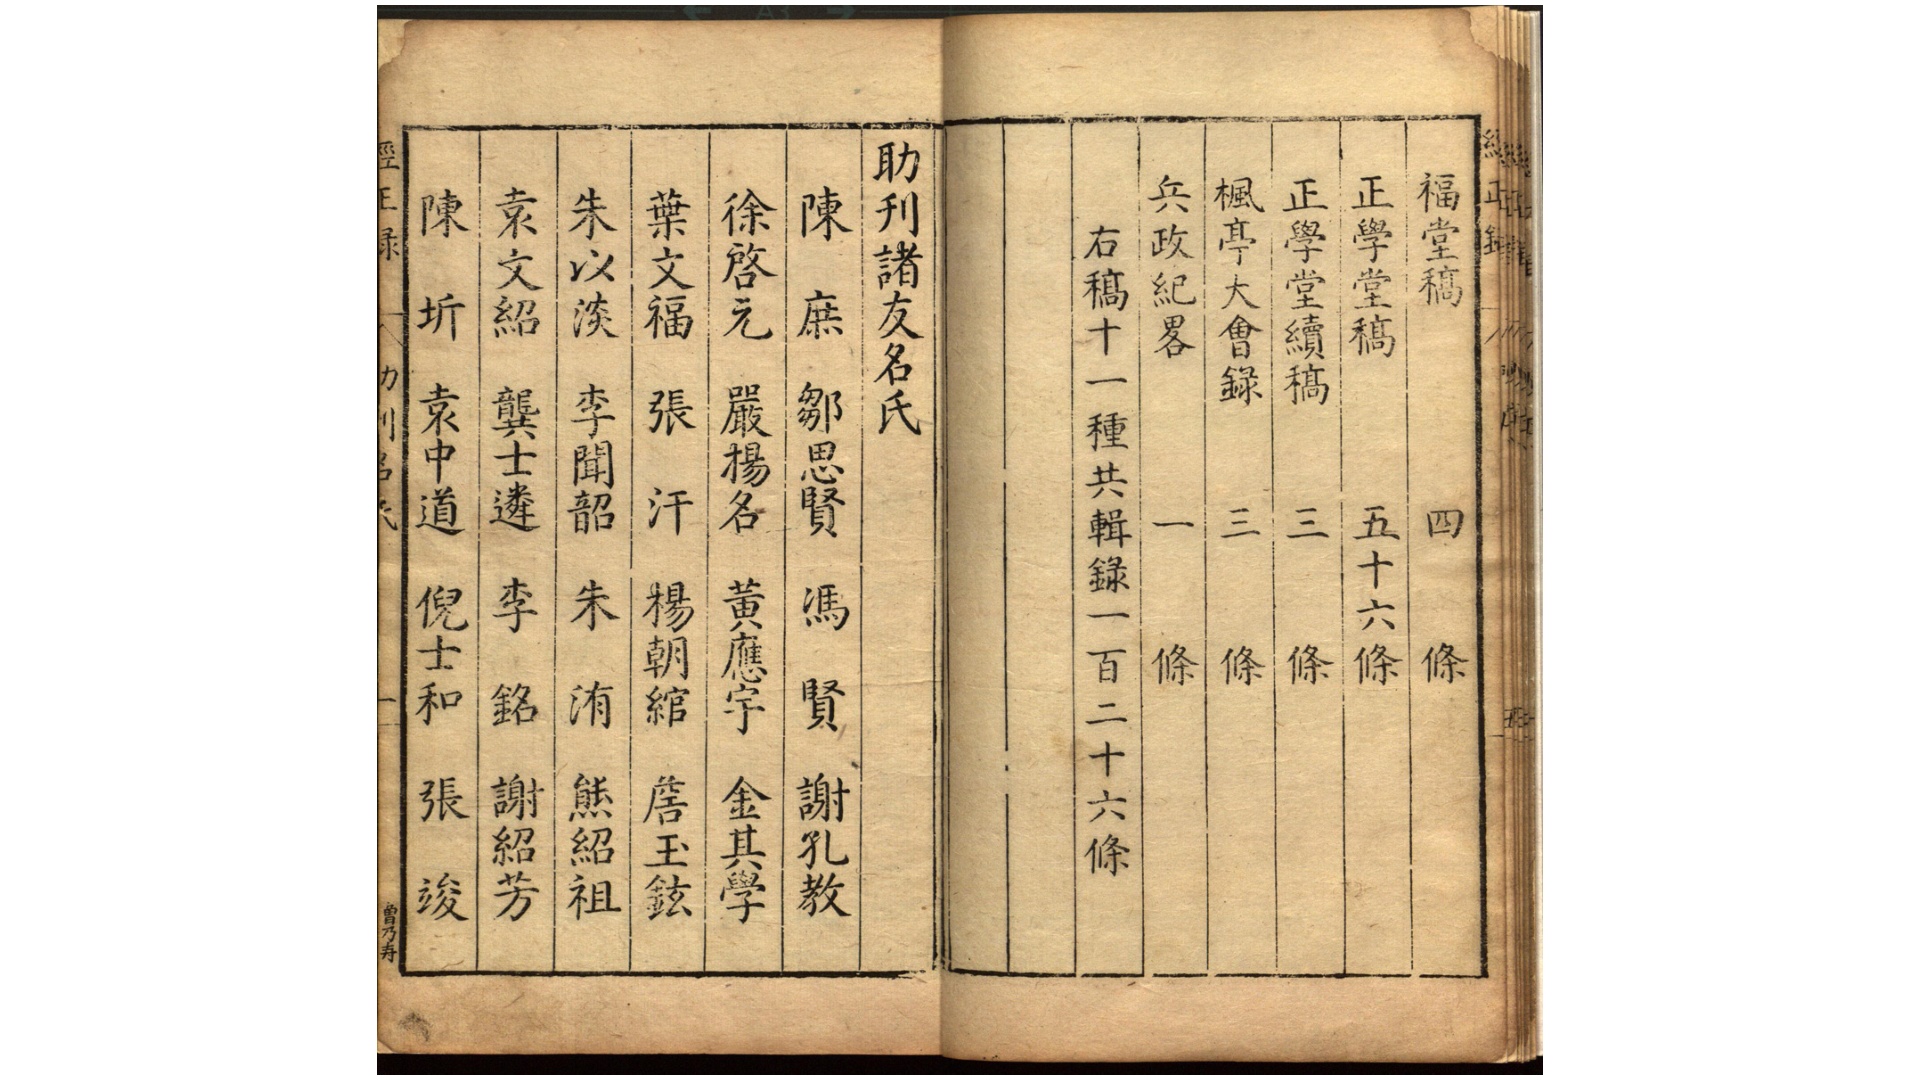 福堂稿 四條
正學堂稿 五十六條
正學堂續稿 三條
楓亭大會錄 三條
兵政紀畧 一條
右稿十一種共輯錄一百二十六條
助刊諸友名氏
陳庶 鄒思賢 馮賢 謝孔教
徐啓元 嚴楊名 黃應宇 金其學
葉文福 張汗 楊朝綰 詹玉鉉
朱以淡 李聞韶 朱洧 熊紹祖
袁文紹 龔士遴 李銘 謝紹芳
陳圻 袁中道 倪士和 張竣
經正录 助刊名氏 一
曾乃寿